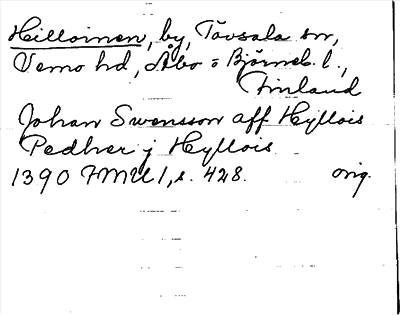 Hilloinen, by, Tövsala sn,
Vemo hd, Åbo o Björneb. l.,
Finland
Johan Swensson aff Hyllois
Pedher j Hyllois
1390 FMU 1, s. 428. orig.